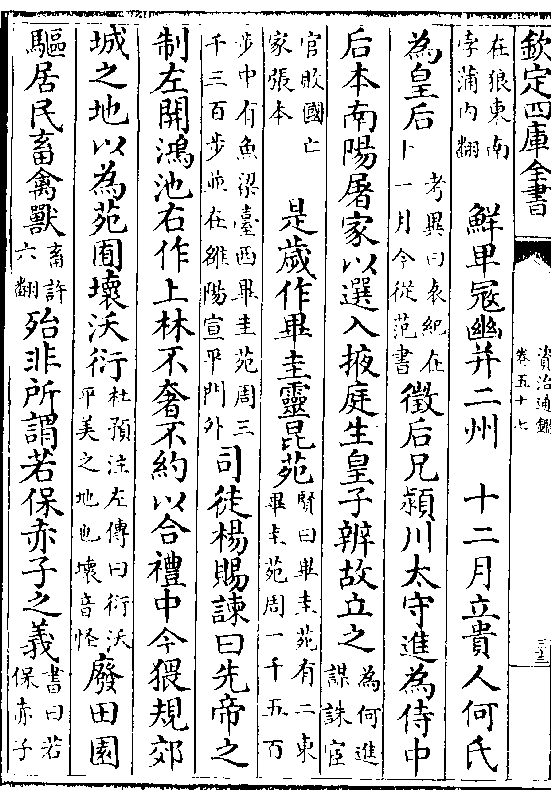 欽定四庫全書
資治通鑑
卷五十七
三十三
在狼東南
孛蒲內翻
鮮卑寇幽并二州 十二月立貴人何氏
為皇后
考異曰袁紀在
卜一月今從范書
徵后兄潁川太守進為侍中
后本南陽屠家以選入掖庭生皇子辨故立之
為何進
謀誅宦
官敗國亡
家張本
是歲作畢圭靈昆苑
賢曰畢圭苑有二東
畢圭苑周一千五百
步中有魚梁臺西畢圭苑周三
千三百步並在雒陽宣平門外
司徒楊賜諫曰先帝之
制左開鴻池右作上林不奢不約以合禮中今猥規郊
城之地以為苑囿壞沃衍
杜預注左傳曰衍沃
平美之地也壞音怪
廢田園
驅居民畜禽獸
畜許
六翻
殆非所謂若保赤子之義
書曰若
保赤子